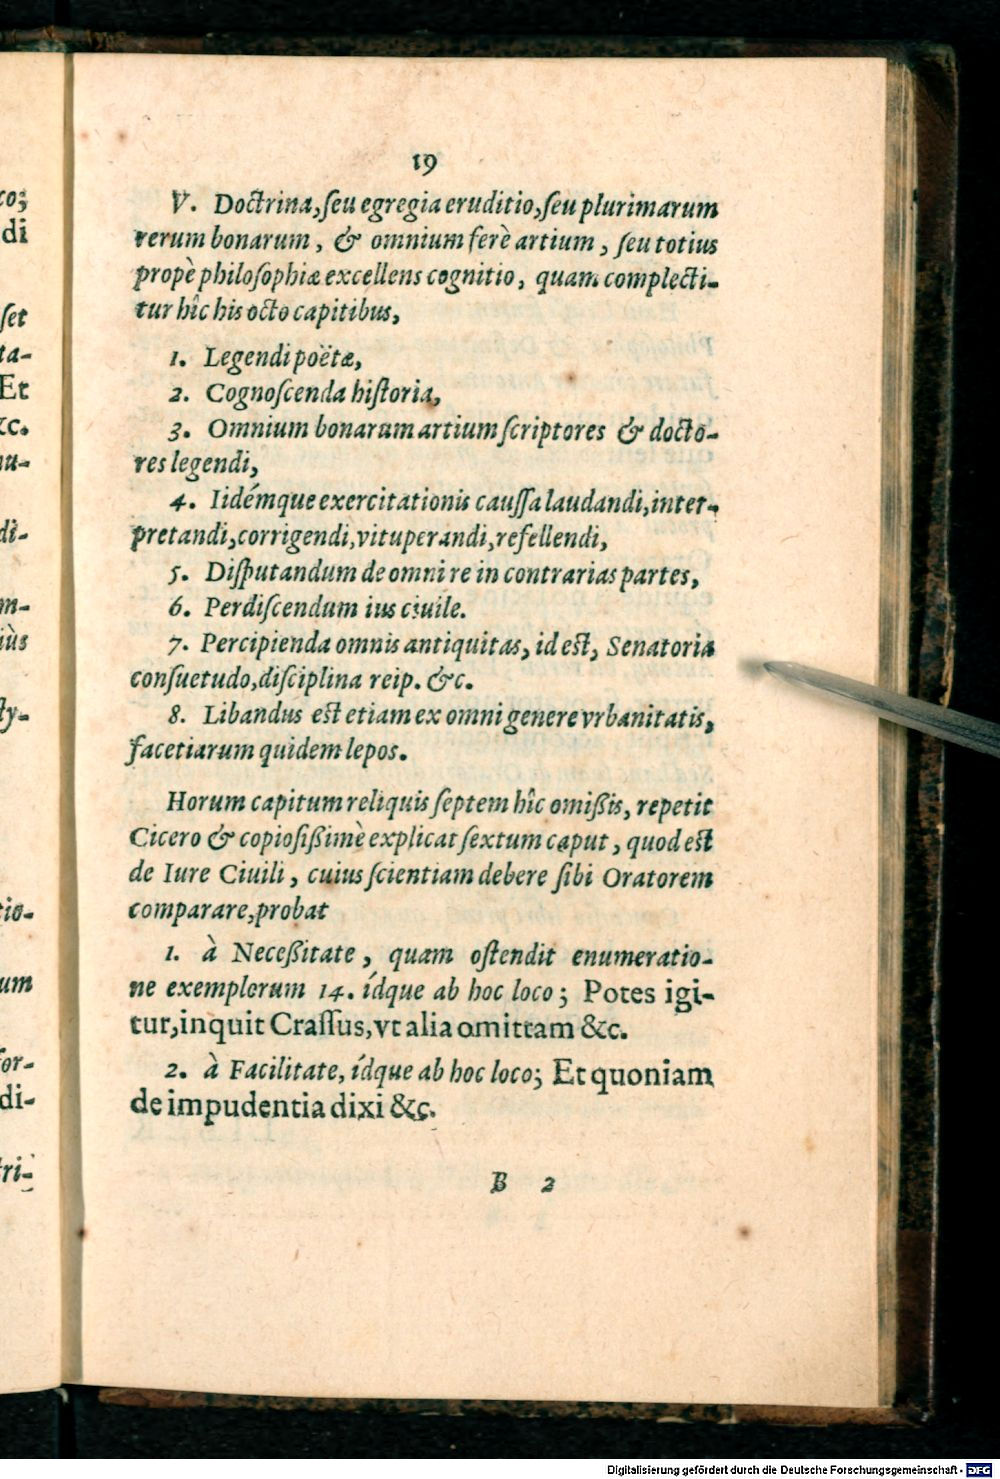 19
V. Doctrina, ſeu egregia eruditio, ſeu plurimarum
rerum bonarum, & omnium ferè artium, ſeu totius
propè philoſophiæ excellens cognitio, quam complecti-
tur hîc his octo capitibus,
1. Legendi poëtæ,
2. Cognoſcenda hiſtoria,
3. Omnium bonarum artium ſcriptores & docto-
res legendi,
4. Iidémque exercitationis cauſſa laudandi, inter-
pretandi, corrigendi, vituperandi, refellendi,
5. Diſputandum de omni re in contrarias partes,
6. Perdiſcendum ius ciuile.
7. Percipienda omnis antiquitas, id eſt, Senatoria
conſuetudo, diſciplina reip. &c.
8. Libandus eſt etiam ex omni genere vrbanitatis,
facetiarum quidem lepos.
Horum capitum reliquis ſeptem hîc omißis, repetit
Cicero & copioſißimè explicat ſextum caput, quod eſt
de Iure Ciuili, cuius ſcientiam debere ſibi Oratorem
comparare, probat
1. à Neceßitate, quam oſtendit enumeratio-
ne exemplorum 14. ídque ab hoc loco; Potes igi-
tur, inquit Craſſus, vt alia omittam &c.
2. à Facilitate, ídque ab hoc loco; Et quoniam
de impudentia dixi &c.
B 2
co;
di
ſet
ta-
Et
&c.
nu-
di-
m-
iùs
ſty-
tio-
um
for-
di-
tri-
Digitalisierung gefördert durch die Deutsche Forschungsgemeinschaft - DFG